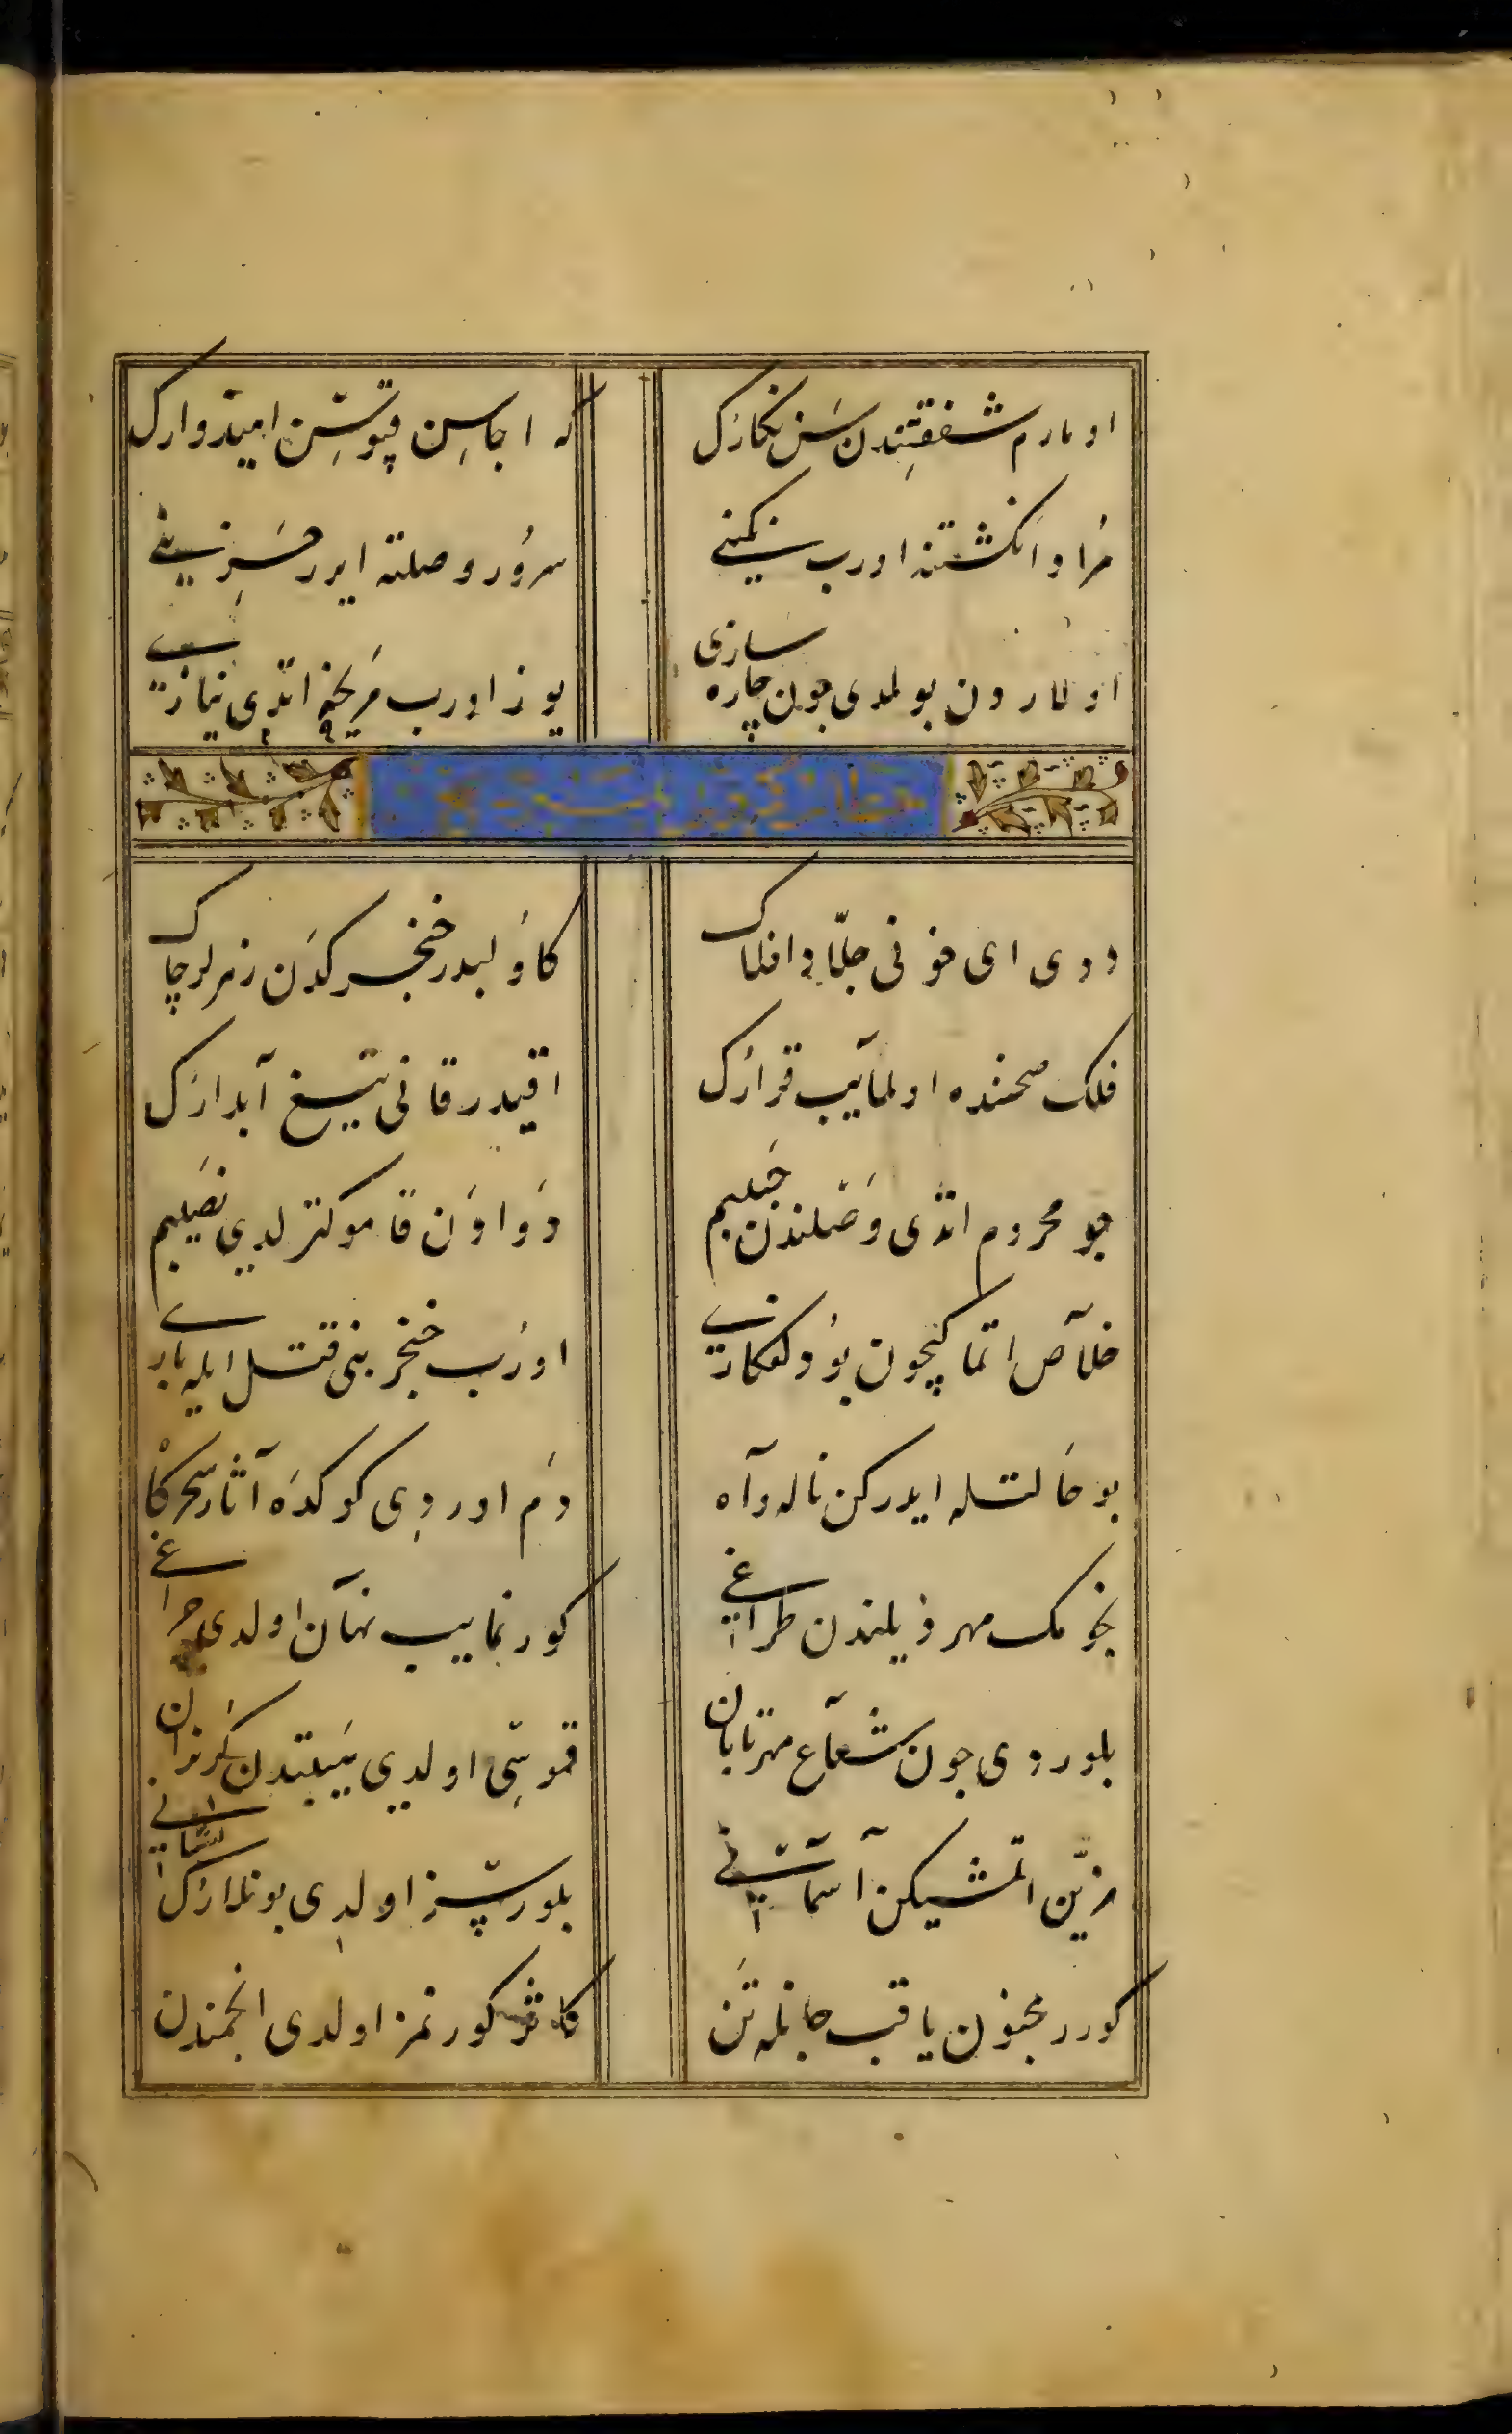 اومارم شفقتندن سن نگارک
که اچاسن قپوسن امیدوارک
مراد انکشتنه اورب نکینی
سرور وصلته ایرر حزینی
اولارون بولمدی چون چاره سازی
یوز اورب مریخه اتدی نیازی
ددی ای خونی جلاد افلاک
کاولیدر خنجرکدن زهرلر چاک
فلک صحننده اولمایب قرارک
اقیدر قانی تیغ آبدارک
چو محروم اتدی وصلندن حبیبم
دوا اون قامو کترلدی نصیبم
خلاص اتماکیچون بو دلفکاری
اورب خنجر بنی قتل ایله باری
بو حالتله ایدرکن ناله و آه
دم اوردی کوکده آثار سحرکاه
نجومک مهر ذیلندن طراغی
کورنمایب نهان اولدی چراغی
بلوردی چون شعاع مهر تابان
قموسی اولدی هیبتندن کریزان
مزین اتمشیکن آسمانی
بلورسز اولدی بونلارک نشانی
کورر مجنون یاقب جانله تن
کورنمز اولدی انجمندن